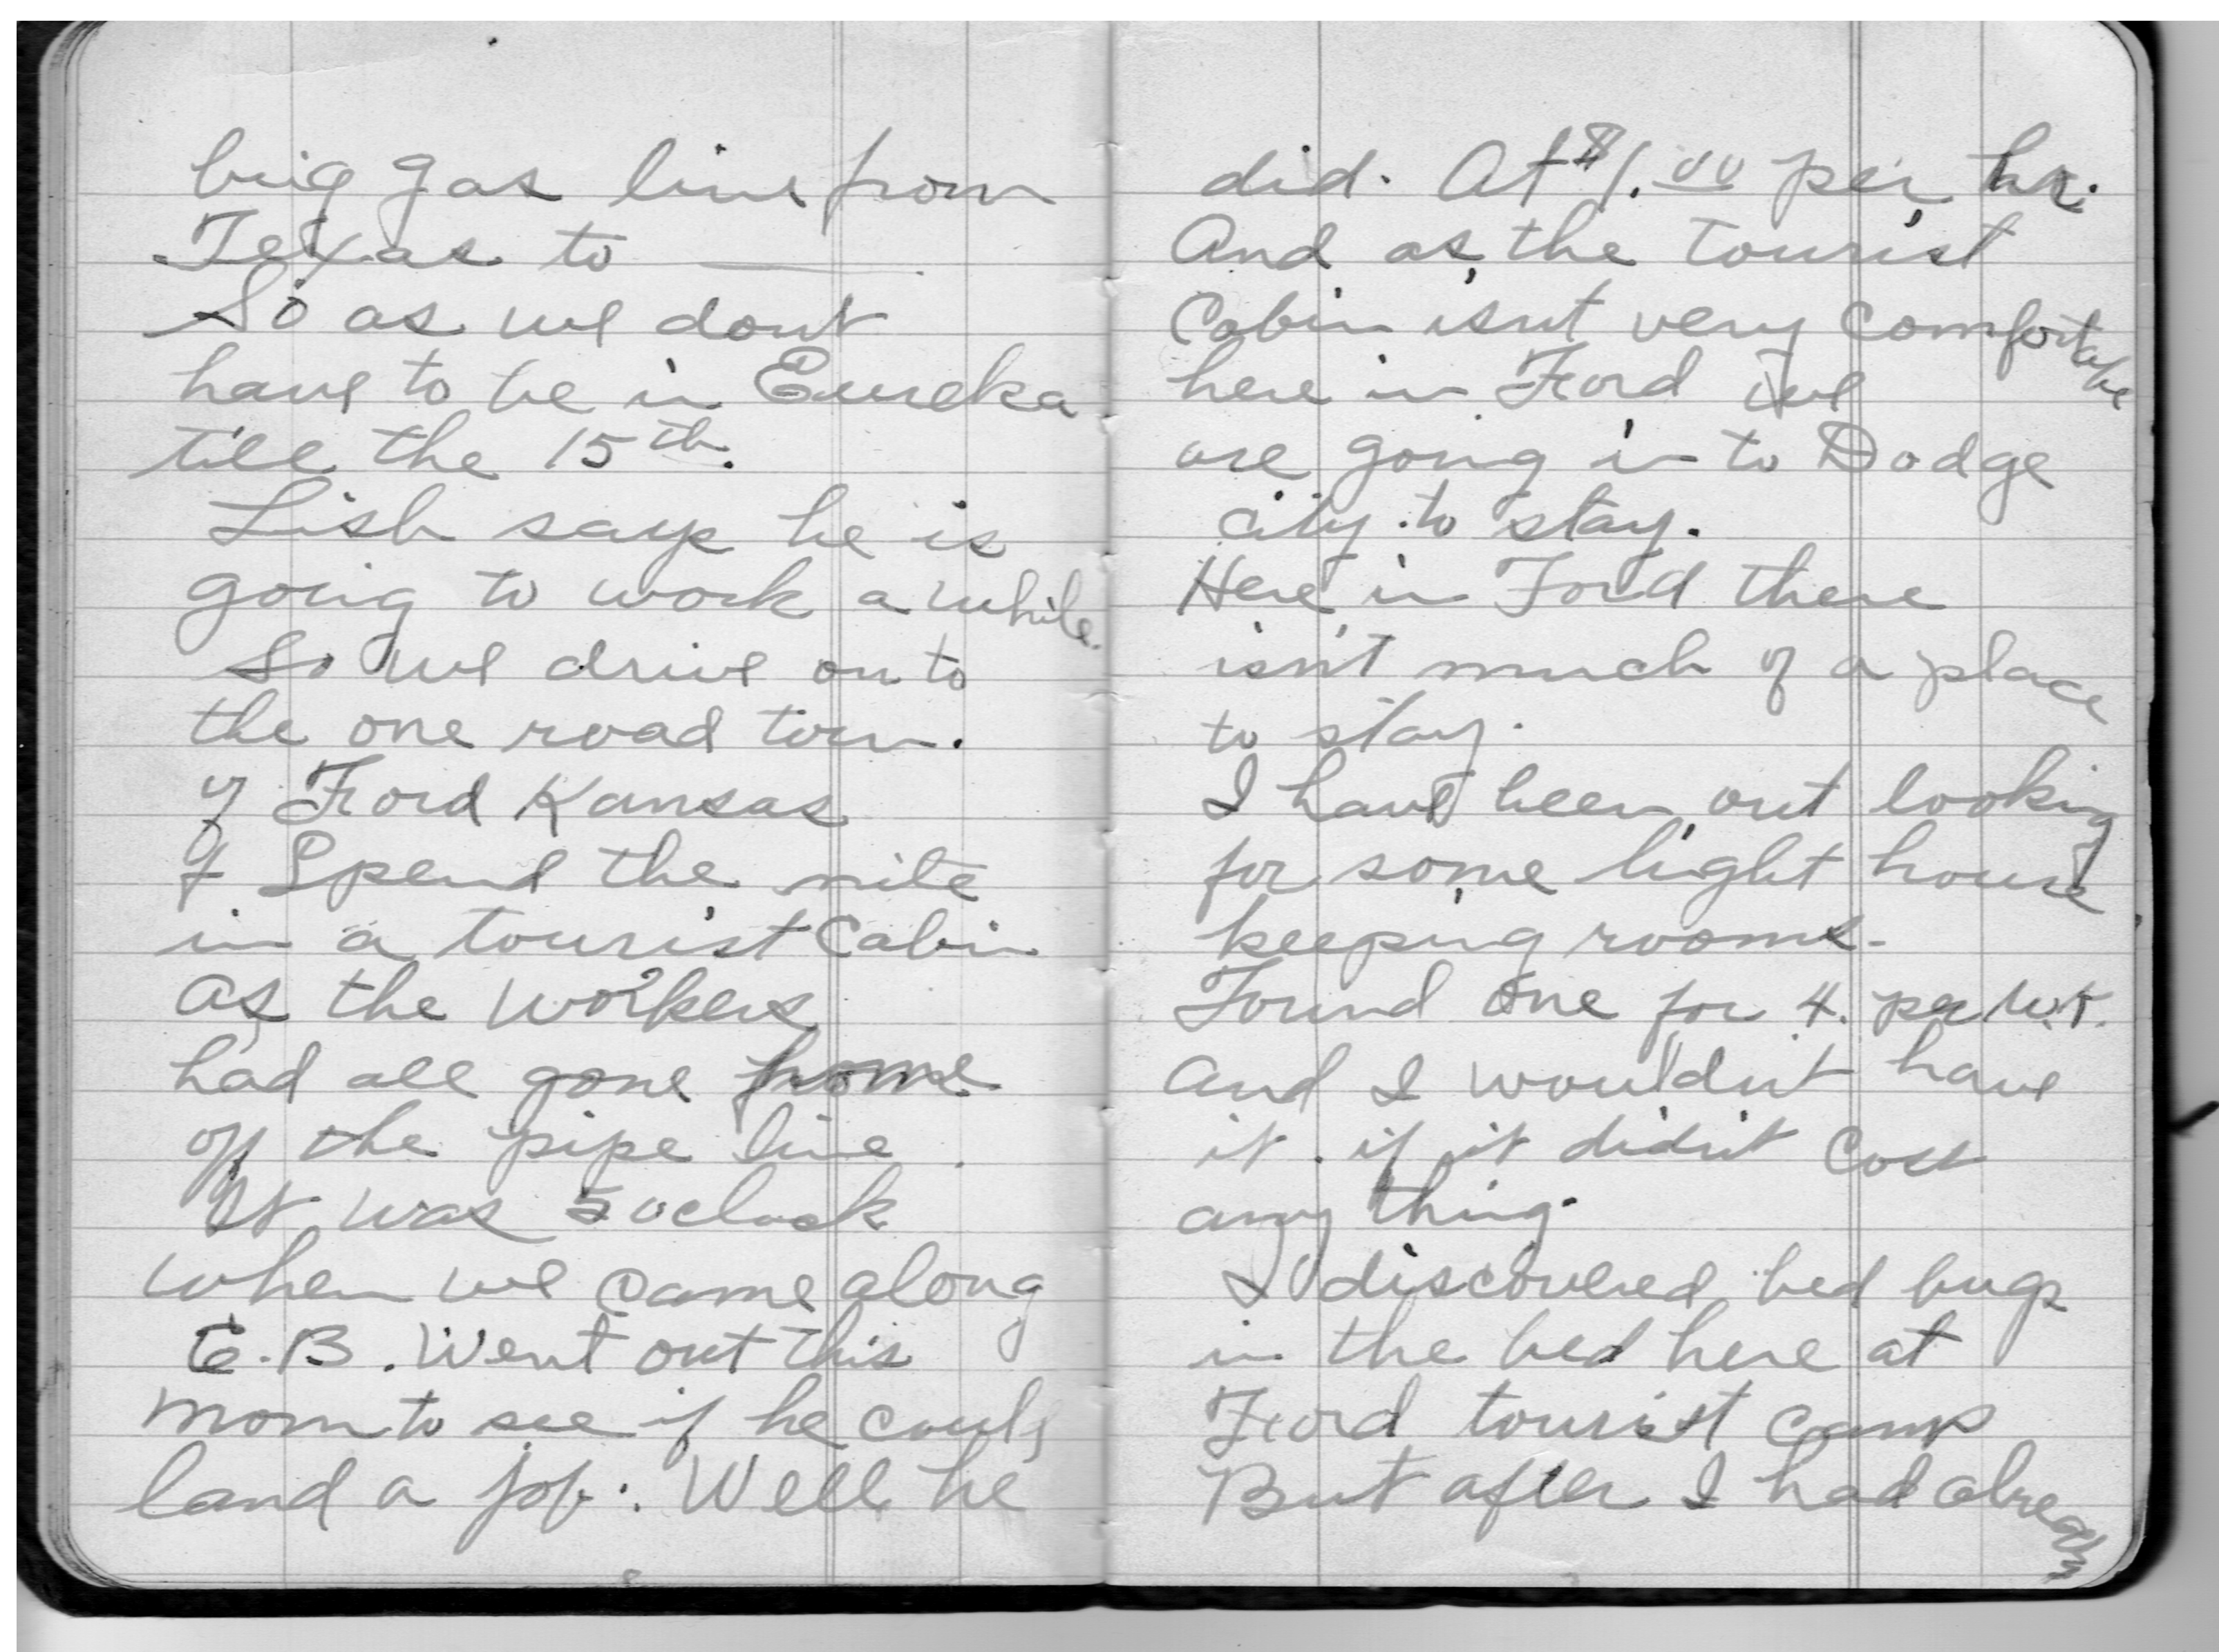 big gas line from
Texas to ———.
So as we dont
have to be in Eureka
till the 15th.
Lish says he is
going to work a while.
So we drive on to
the one road town.
of Ford Kansas
& Spend the nite
in a tourist Cabin
as the workers
had all gone home
off the pipe line.
It was 5 oclock
when we came along
E.B. Went out this
morn to see if he could
land a job. Well he
did. At $1.00 per hr.
And as the tourist
Cabin isnt very Comfortable
here in Ford we
are going in to Dodge
city to stay.
Here in Ford there
isn't much of a place
to stay.
I have been out looking
for some light house
keeping rooms.
Found one for 4. per wk.
and I wouldn't have
it if it didn't Cost
any thing.
I discovered bed bugs
in the bed here at
Ford tourist Camp
But after I had already